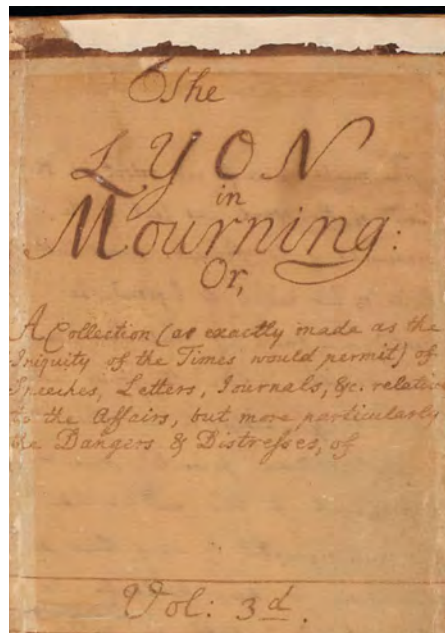 The
LYON
in
Mourning:
Or,
A Collection (as exactly made as the
Iniquity of the Times would permit) of
Speeches, Letters, Journals, &c. relativ
to the Affairs, but more particularly
the Dangers & Distresses, of
Vol: 3d.